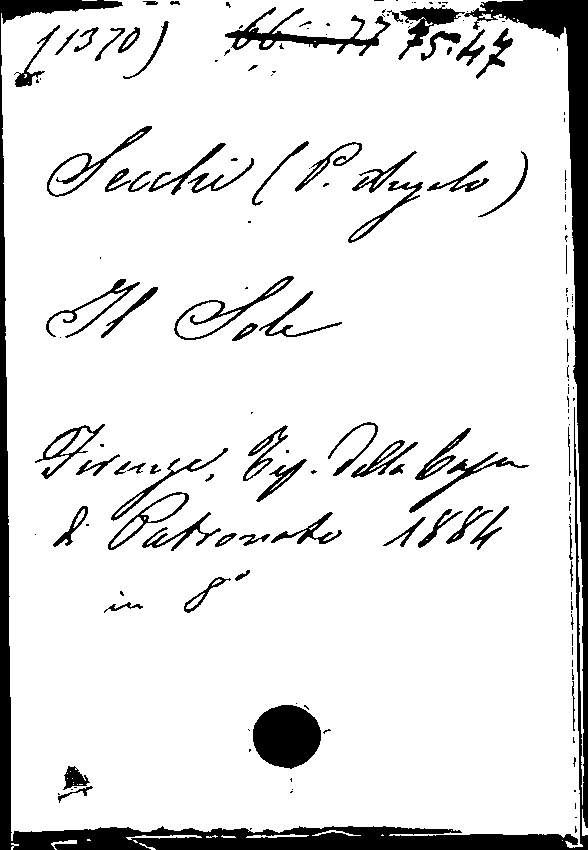 (1370) 66 77 75.47
Secchi (P. Angelo)
Il Sole
Firenze, Tip. della Casa
di Patronato 1884
in 8°